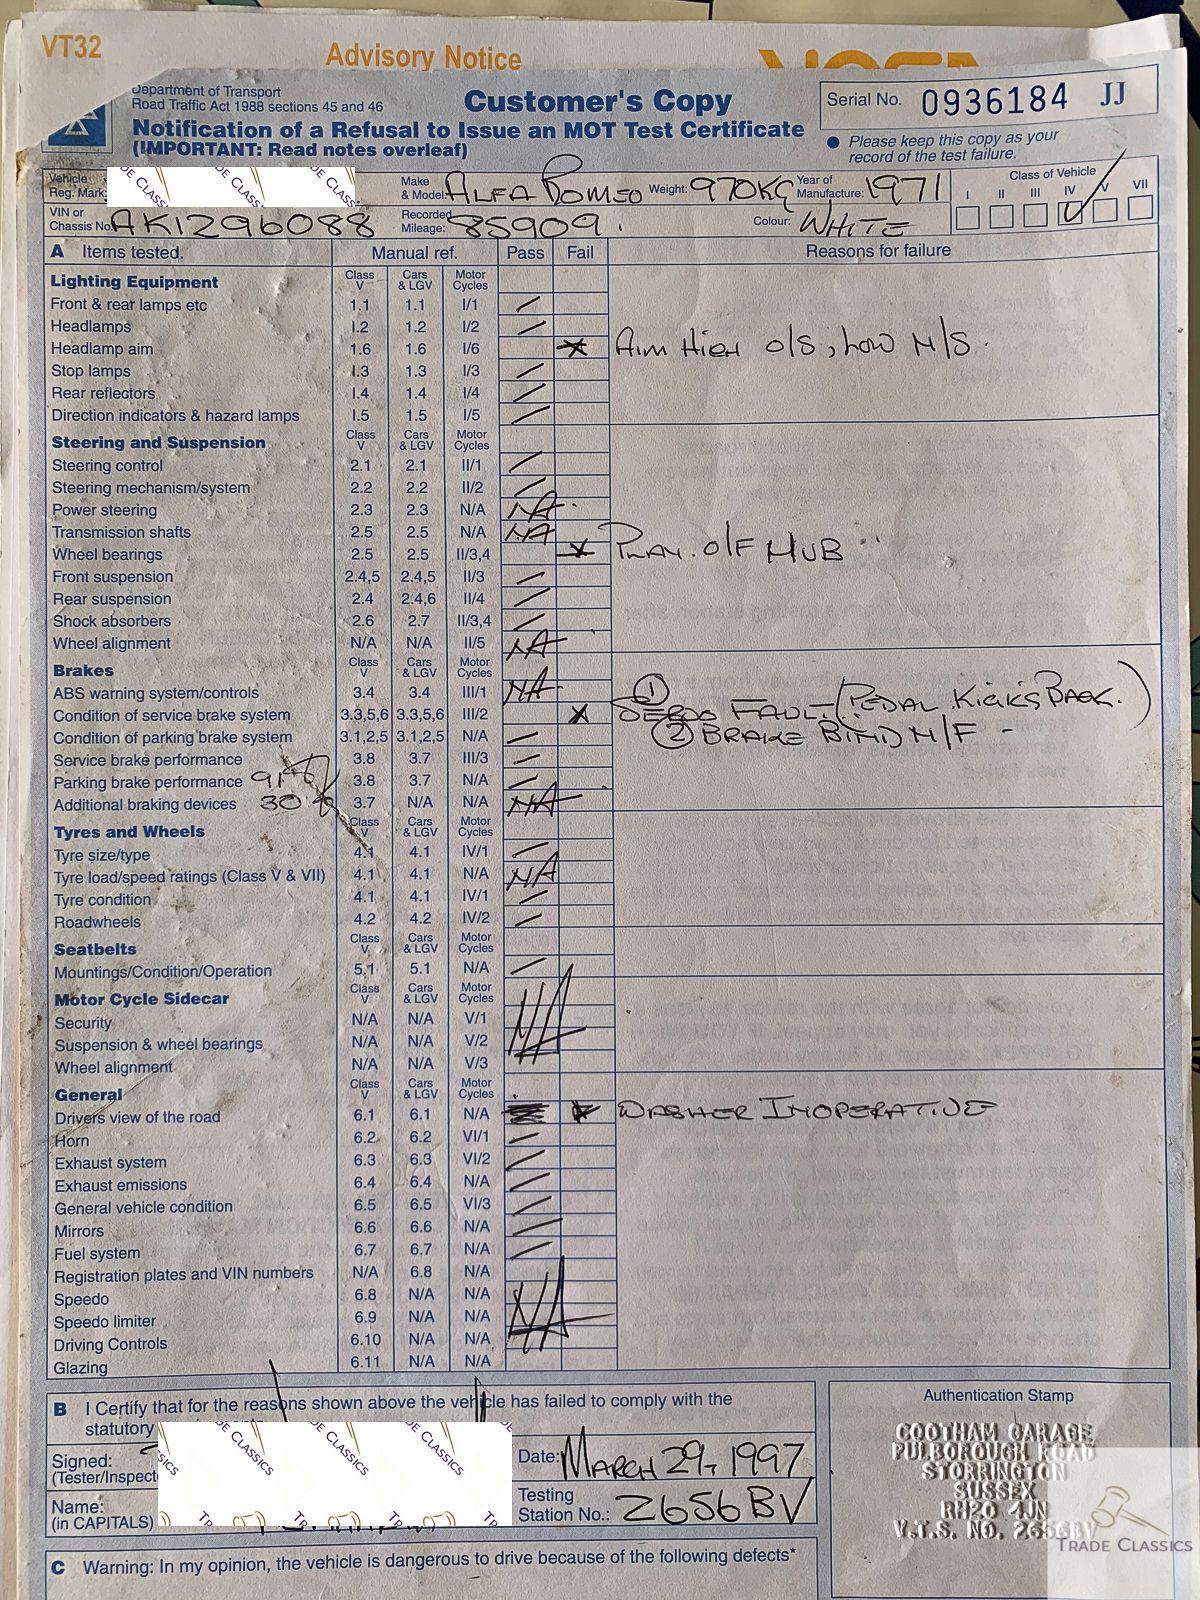 VT32
Advisory Notice
Department of Transport
Road Traffic Act 1988 sections 45 and 46
Customer's Copy
Notification of a Refusal to Issue an MOT Test Certificate
(IMPORTANT: Read notes overleaf)
Serial No. 0936184 JJ
● Please keep this copy as your
record of the test failure.
Vehicle
Reg. Mark:
Make
& Model: ALFA ROMEO
Weight: 970KG
Year of
Manufacture: 1971
Class of Vehicle
I II III IV V VII
VIN or
Chassis No. AK1296088
Recorded
Mileage: 85909.
Colour: WHITE
A Items tested. Manual ref. Pass Fail Reasons for failure
Lighting Equipment Class V Cars & LGV Motor Cycles
Front & rear lamps etc 1.1 1.1 I/1
Headlamps 1.2 1.2 I/2
Headlamp aim 1.6 1.6 I/6 AIM HIGH O/S, LOW N/S.
Stop lamps 1.3 1.3 I/3
Rear reflectors 1.4 1.4 I/4
Direction indicators & hazard lamps 1.5 1.5 I/5
Steering and Suspension Class V Cars & LGV Motor Cycles
Steering control 2.1 2.1 II/1
Steering mechanism/system 2.2 2.2 II/2
Power steering 2.3 2.3 N/A NA
Transmission shafts 2.5 2.5 N/A NA
Wheel bearings 2.5 2.5 II/3,4 PLAY. O/F HUB
Front suspension 2.4,5 2.4,5 II/3
Rear suspension 2.4 2.4,6 II/4
Shock absorbers 2.6 2.7 II/3,4
Wheel alignment N/A N/A II/5 NA
Brakes Class V Cars & LGV Motor Cycles
ABS warning system/controls 3.4 3.4 III/1 NA
Condition of service brake system 3.3,5,6 3.3,5,6 III/2 ① SERVO FAULT (PEDAL KICKS BACK.)
Condition of parking brake system 3.1,2,5 3.1,2,5 N/A ② BRAKE BIND N/F
Service brake performance 3.8 3.7 III/3
Parking brake performance 91% 3.8 3.7 N/A
Additional braking devices 30% 3.7 N/A N/A NA
Tyres and Wheels Class V Cars & LGV Motor Cycles
Tyre size/type 4.1 4.1 IV/1
Tyre load/speed ratings (Class V & VII) 4.1 4.1 N/A NA
Tyre condition 4.1 4.1 IV/1
Roadwheels 4.2 4.2 IV/2
Seatbelts Class V Cars & LGV Motor Cycles
Mountings/Condition/Operation 5.1 5.1 N/A
Motor Cycle Sidecar Class V Cars & LGV Motor Cycles
Security N/A N/A V/1
Suspension & wheel bearings N/A N/A V/2 NA
Wheel alignment N/A N/A V/3
General Class V Cars & LGV Motor Cycles
Drivers view of the road 6.1 6.1 N/A WASHER INOPERATIVE
Horn 6.2 6.2 VI/1
Exhaust system 6.3 6.3 VI/2
Exhaust emissions 6.4 6.4 N/A
General vehicle condition 6.5 6.5 VI/3
Mirrors 6.6 6.6 N/A
Fuel system 6.7 6.7 N/A
Registration plates and VIN numbers N/A 6.8 N/A
Speedo 6.8 N/A N/A
Speedo limiter 6.9 N/A N/A NA
Driving Controls 6.10 N/A N/A
Glazing 6.11 N/A N/A
B I Certify that for the reasons shown above the vehicle has failed to comply with the
statutory
Signed:
(Tester/Inspect
Date: MARCH 29, 1997
Name:
(in CAPITALS)
Testing
Station No.: 2656BV
Authentication Stamp
COOTHAM GARAGE
PULBOROUGH ROAD
STORRINGTON
SUSSEX
RH20 4JN
V.T.S. NO. 2656BV
TRADE CLASSICS
C Warning: In my opinion, the vehicle is dangerous to drive because of the following defects*